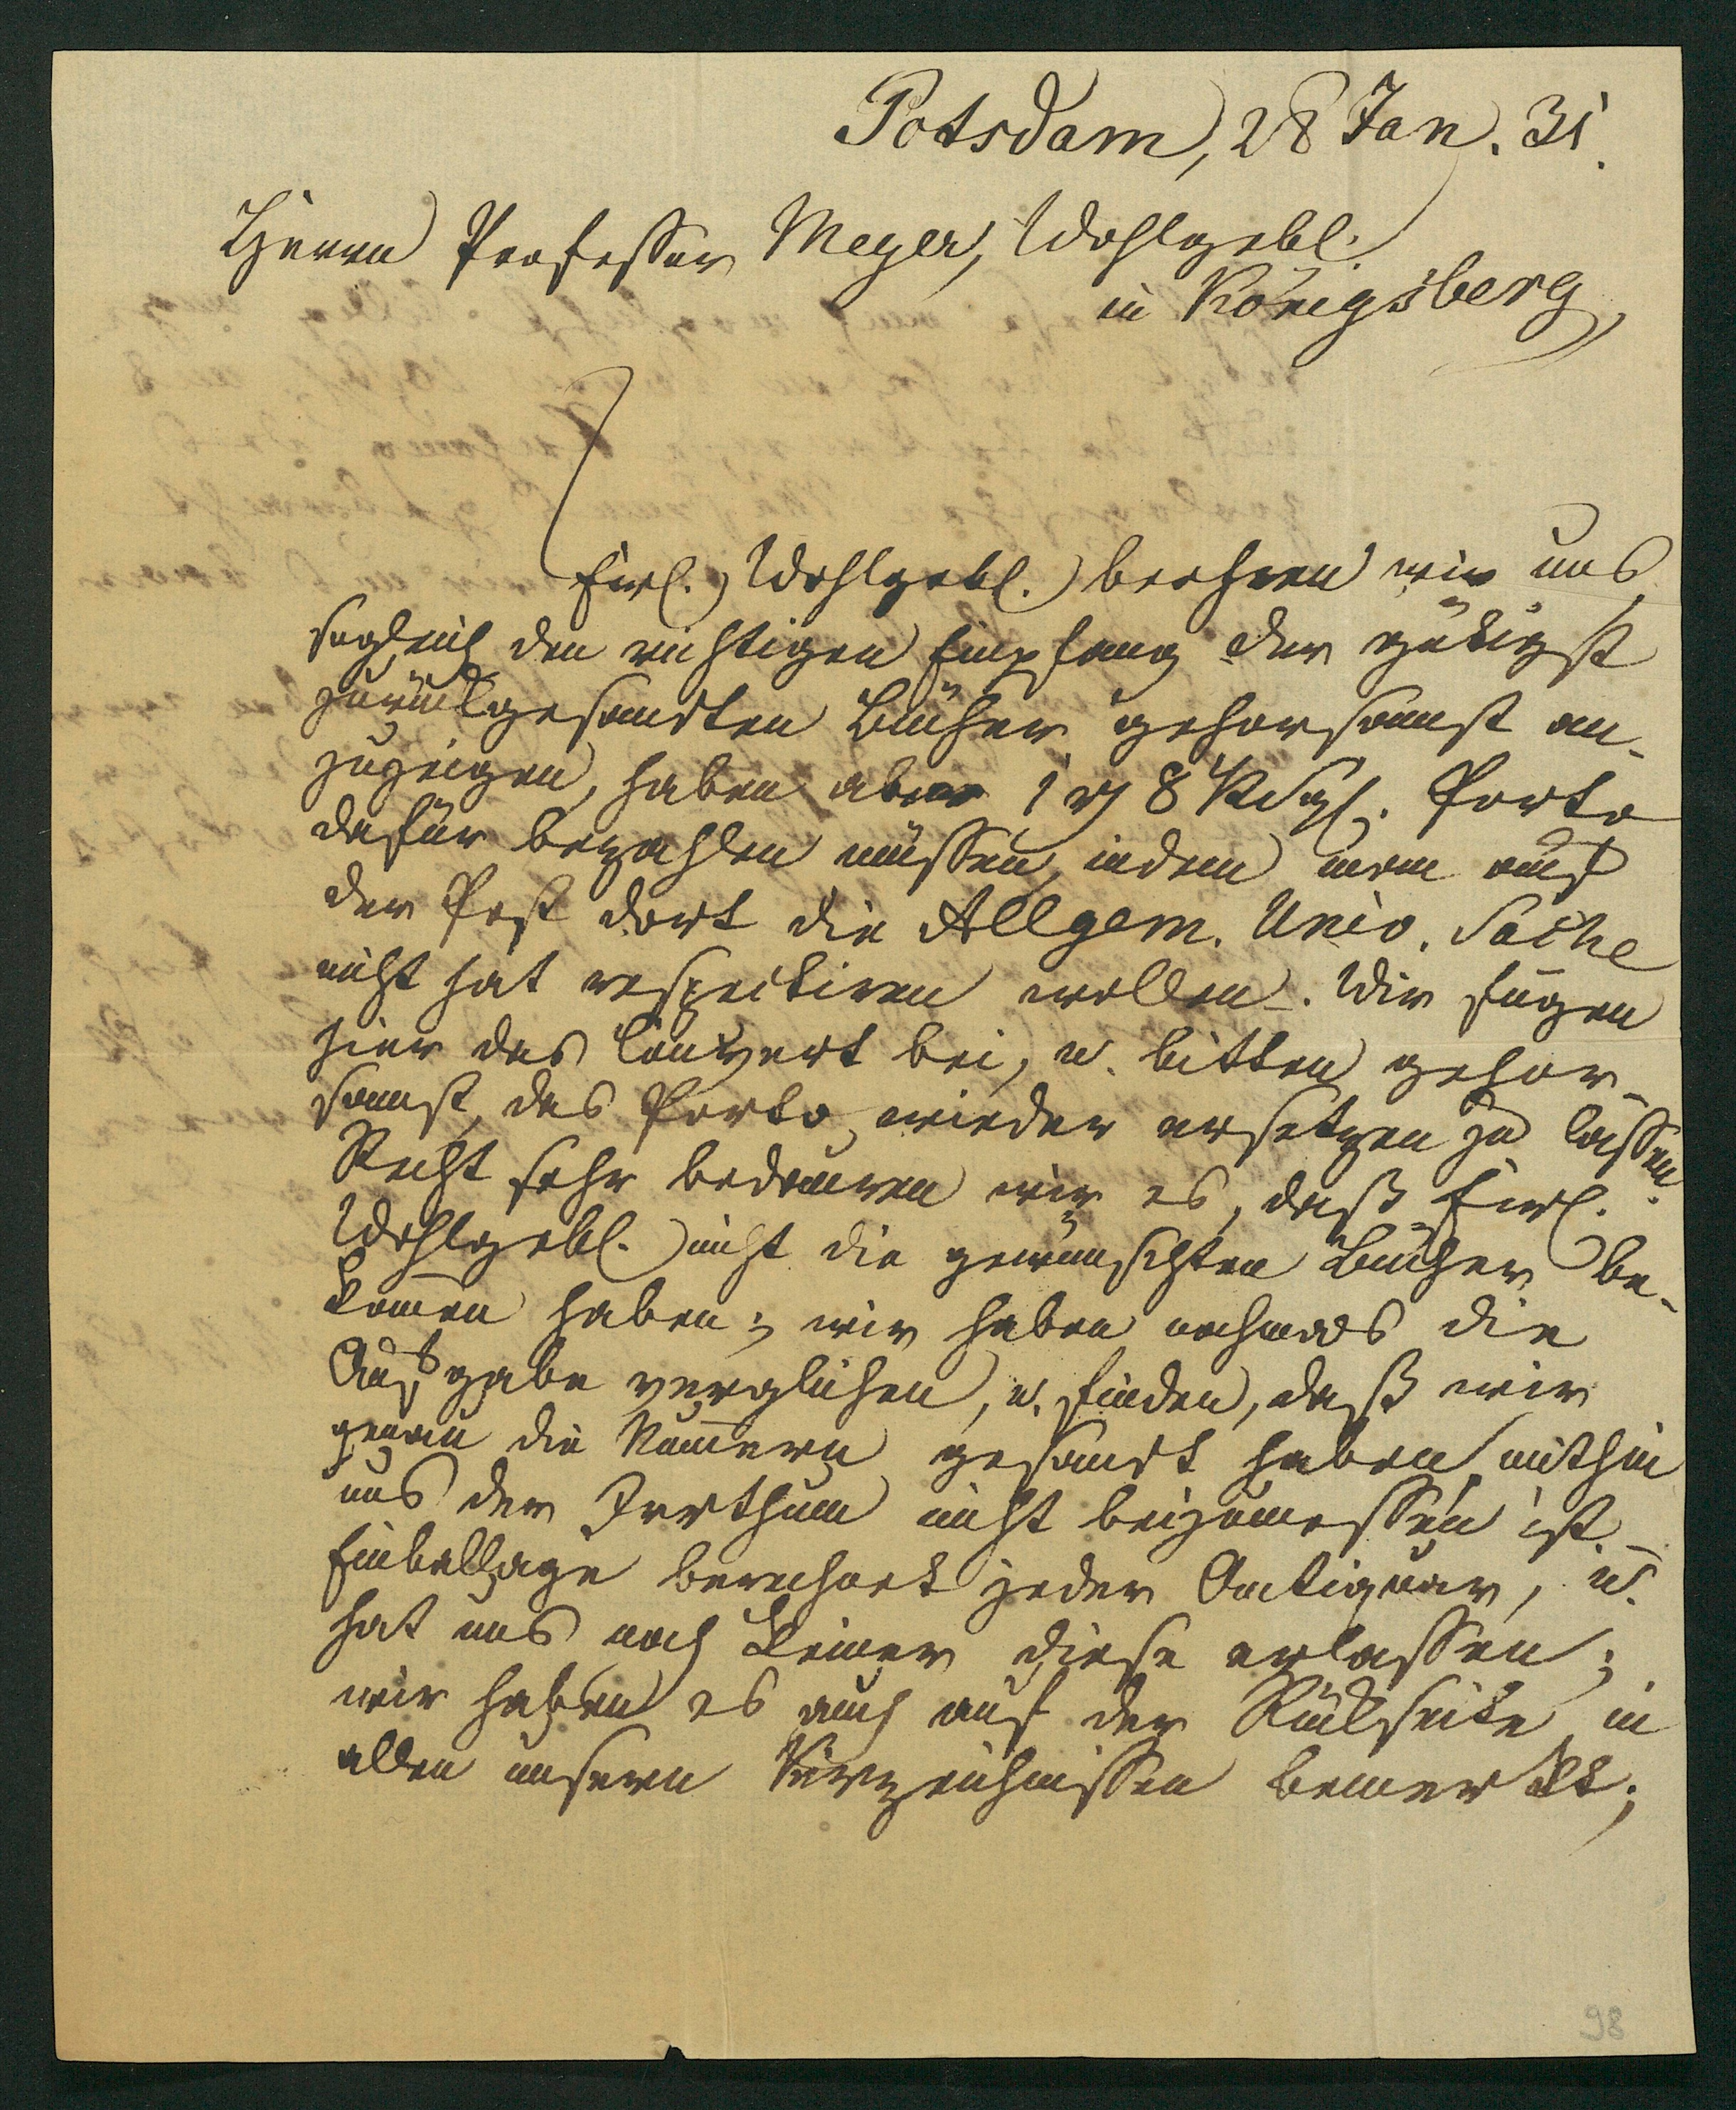 Potsdam, 28 Jan. 31.
Herrn Professor Meyer, Wohlgebl.
in Königsberg
Ewl. Wohlgebl. beehren wir uns
sogleich den richtigen Empfang der gütigst
zurückgesandten Bücher gehorsamst an-
zuzeigen, haben aber 1 8 Porto
dafür bezahlen müssen, indem man auf
der Post dort die Allgem. Univ. Sache
nicht hat respectiren wollen. Wir fügen
hier das Couvert bei, u. bitten gehor-
samst, das Porto wieder ersetzen zu lassen.
Recht sehr bedauren wir es, daß Ewl.
Wohlgebl. nicht die gewünschten Bücher be-
kom̅en haben; wir haben nochmals die
Aufgabe verglichen, u. finden, daß wir
genau die Num̅ern gesandt haben, mithin
uns der Irrthum nicht beizumessen ist.
Emballage berechnet jeder Antiquar, u.
hat uns noch keiner diese erlassen;
wir haben es auch auf der Rückseite in
allen unsern Verzeichnissen bemerkt;
98